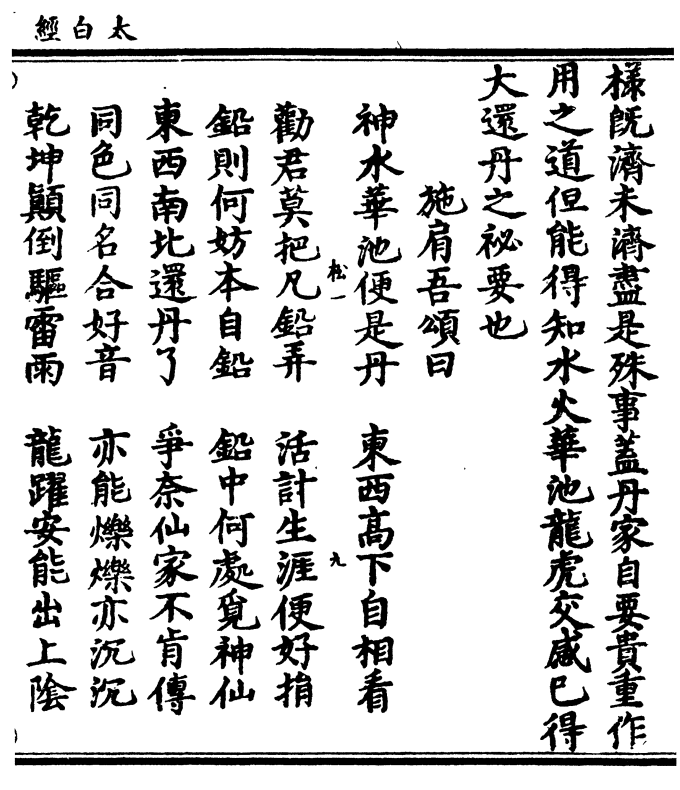 太白經
樣旣濟未濟盡是殊事蓋丹家自要貴重作
用之道但能得知水火華池龍虎交感已得
大還丹之祕要也
施肩吾頌曰
神水華池便是丹　東西高下自相看
松一　九
勸君莫把凡鉛弄　活計生涯便好捐
鉛則何妨本自鉛　鉛中何處覓神仙
東西南北還丹了　爭奈仙家不肯傳
同色同名合好音　亦能爍爍亦沉沉
乾坤顚倒驅雷雨　龍躍安能出上陰